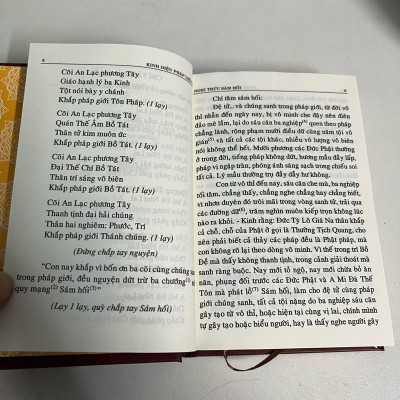 8
KINH DIỆU PHÁP
Cõi An Lạc phương Tây
Giáo hạnh lý ba Kinh
Tột nói bày y chánh
Khắp pháp giới Tôn Pháp. (1 lạy)
Cõi An Lạc phương Tây
Quán Thế Âm Bồ Tát
Thân tử kim muôn ức
Khắp pháp giới Bồ Tát. (1 lạy)
Cõi An Lạc phương Tây
Đại Thế Chí Bồ Tát
Thân trí sáng vô biên
Khắp pháp giới Bồ Tát. (1 lạy)
Cõi An Lạc phương Tây
Thanh tịnh đại hải chúng
Thân hai nghiêm: Phước, Trí
Khắp pháp giới Thánh chúng. (1 lạy)
(Đứng chắp tay nguyện)
"Con nay khắp vì bốn ơn ba cõi cùng chúng sanh
trong pháp giới, đều nguyện dứt trừ ba chướng(1)
quy mạng(2) Sám hối(3)"
(Lạy 1 lạy, quỳ chắp tay Sám hối)
NGHI THỨC SÁM HỐI
Chí tâm sám hối:
Đệ tử... và chúng sanh trong pháp giới, từ đời vô
thỉ nhẫn đến ngày nay, bị vô minh che đậy nên điên
đảo mê lầm, lại do sáu căn ba nghiệp(4) quen theo pháp
chẳng lành, rộng phạm mười điều dữ cùng năm tội vô
gián(5) và tất cả các tội khác, nhiều vô lượng vô biên
nói không thể hết. Mười phương các Đức Phật thường
ở trong đời, tiếng pháp không dứt, hương mầu đầy lấp,
pháp vị ngập tràn, phóng ánh sáng sạch trong chiếu soi
tất cả. Lý mầu thường trụ đầy dẫy hư không.
Con từ vô thỉ đến nay, sáu căn che mù, ba nghiệp
tối tăm, chẳng thấy, chẳng nghe chẳng hay chẳng biết,
vì nhơn duyên đó trôi mãi trong vòng sanh tử, trải qua
các đường dữ(6), trăm nghìn muôn kiếp trọn không lúc
nào ra khỏi. - Kinh rằng: Đức Tỳ Lô Giá Na thân khắp
cả chỗ, chỗ của Phật ở gọi là Thường Tịch Quang, cho
nên phải biết cả thảy các pháp đều là Phật pháp, mà
con không rõ lại theo dòng vô minh. Vì thế trong trí Bồ
Đề mà thấy không thanh tịnh, trong cảnh giải thoát mà
sanh ràng buộc. Nay mới tỏ ngộ, nay mới chừa bỏ ăn
năn, phụng đối trước các Đức Phật và A Mi Đà Thế
Tôn mà phát lồ(7) Sám hối, làm cho đệ tử cùng pháp
giới chúng sanh, tất cả tội nặng do ba nghiệp sáu căn
gây tạo từ vô thỉ, hoặc hiện tại cùng vị lai, chính mình
tự gây tạo hoặc biểu người, hay là thấy nghe người gây